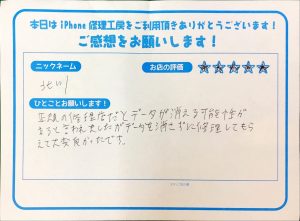 本日は iPhone 修理工房をご利用頂きありがとうございます!
ご感想をお願いします!
ニックネーム
お店の評価
ひとことお願いします!
正規の修理店だとデータが消える可能性が
あると言われましたがデータを消さずに修理してもら
えて大変良かったです。